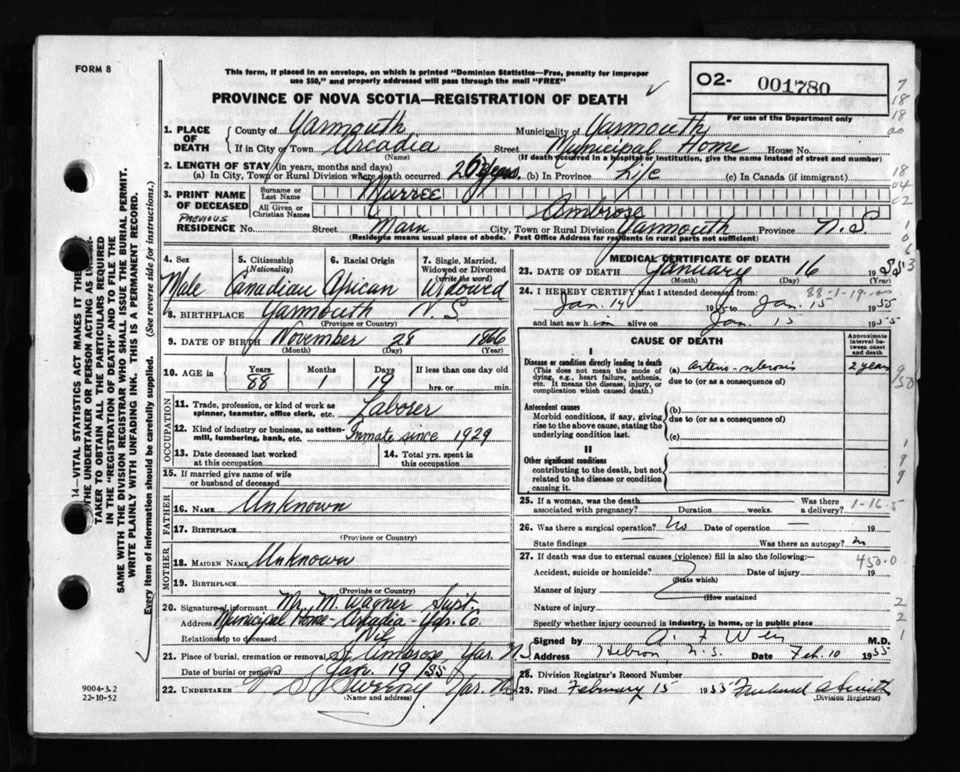 FORM 8
This form, if placed in an envelope, on which is printed "Dominion Statistics—Free, penalty for improper
use $50," and properly addressed will pass through the mail "FREE"
PROVINCE OF NOVA SCOTIA—REGISTRATION OF DEATH
O2- 001780
For use of the Department only
1. PLACE OF DEATH
County of Yarmouth Municipality of Yarmouth
If in City or Town Arcadia Street Municipal Home House No.
(Name) (If death occurred in a hospital or institution, give the name instead of street and number)
2. LENGTH OF STAY (in years, months and days)
(a) In City, Town or Rural Division where death occurred yrs. (b) In Province Life (c) In Canada (if immigrant)
3. PRINT NAME OF DECEASED
Surname or Last Name Murree
All Given or Christian Names Ambrose
Previous
RESIDENCE No. Street Main City, Town or Rural Division Yarmouth Province N.S.
(Residence means usual place of abode. Post Office Address for residents in rural parts not sufficient)
4. Sex 5. Citizenship (Nationality) 6. Racial Origin 7. Single, Married, Widowed or Divorced (write the word)
Male Canadian African Widowed
8. BIRTHPLACE Yarmouth N.S.
(Province or Country)
9. DATE OF BIRTH November 28 1866
(Month) (Day) (Year)
10. AGE Years Months Days If less than one day
88 1 19 hrs. or min.
OCCUPATION
11. Trade, profession, or kind of work as spinner, teamster, office clerk, etc. Laborer
12. Kind of industry or business, as cotton-mill, lumbering, bank, etc. Inmate since 1929
13. Date deceased last worked at this occupation 14. Total yrs. spent in this occupation
15. If married give name of wife or husband of deceased
FATHER
16. NAME Unknown
17. BIRTHPLACE
(Province or Country)
MOTHER
18. MAIDEN NAME Unknown
19. BIRTHPLACE
(Province or Country)
20. Signature of informant Mr. M. Wagner Supt.
Address Municipal Home - Arcadia - Yar. Co.
Relationship to deceased Nil
21. Place of burial, cremation or removal St Ambrose Yar. N.S
Date of burial or removal Jan. 19 /55
22. UNDERTAKER Sweeny Yar. N.S
(Name and address)
9004-3.2
22-10-52
MEDICAL CERTIFICATE OF DEATH
23. DATE OF DEATH January 16 1955
(Month) (Day) (Year)
24. I HEREBY CERTIFY that I attended deceased from: 88-1-19
Jan. 14 1955 to Jan. 15 1955
and last saw him alive on Jan. 15 1955
CAUSE OF DEATH Approximate interval between onset and death
I
Disease or condition directly leading to death (a) arterio-sclerosis 2 years
(This does not mean the mode of dying, e.g., heart failure, asthenia, etc. It means the disease, injury, or complication which caused death.)
due to (or as a consequence of)
Antecedent causes
Morbid conditions, if any, giving rise to the above cause, stating the underlying condition last.
(b)
due to (or as a consequence of)
(c)
II
Other significant conditions
contributing to the death, but not related to the disease or condition causing it.
25. If a woman, was the death associated with pregnancy? Duration weeks. Was there a delivery? 1-16-5
26. Was there a surgical operation? No Date of operation — 19
State findings — Was there an autopsy? no
27. If death was due to external causes (violence) fill in also the following:— 450.0
Accident, suicide or homicide? Date of injury 19
(State which)
Manner of injury
(How sustained
Nature of injury
Specify whether injury occurred in industry, in home, or in public place
Signed by A. F. Weir M.D.
Address Hebron, N.S. Date Feb. 10 1955
28. Division Registrar's Record Number
29. Filed February 15 1955
(Division Registrar)
14—VITAL STATISTICS ACT MAKES IT THE
THE UNDERTAKER OR PERSON ACTING AS
TAKER TO OBTAIN ALL THE PARTICULARS REQUIRED
IN THE "REGISTRATION OF DEATH" AND TO FILE THE
SAME WITH THE DIVISION REGISTRAR WHO SHALL ISSUE THE BURIAL PERMIT.
WRITE PLAINLY WITH UNFADING INK. THIS IS A PERMANENT RECORD.
Every item of information should be carefully supplied. (See reverse side for instructions.)